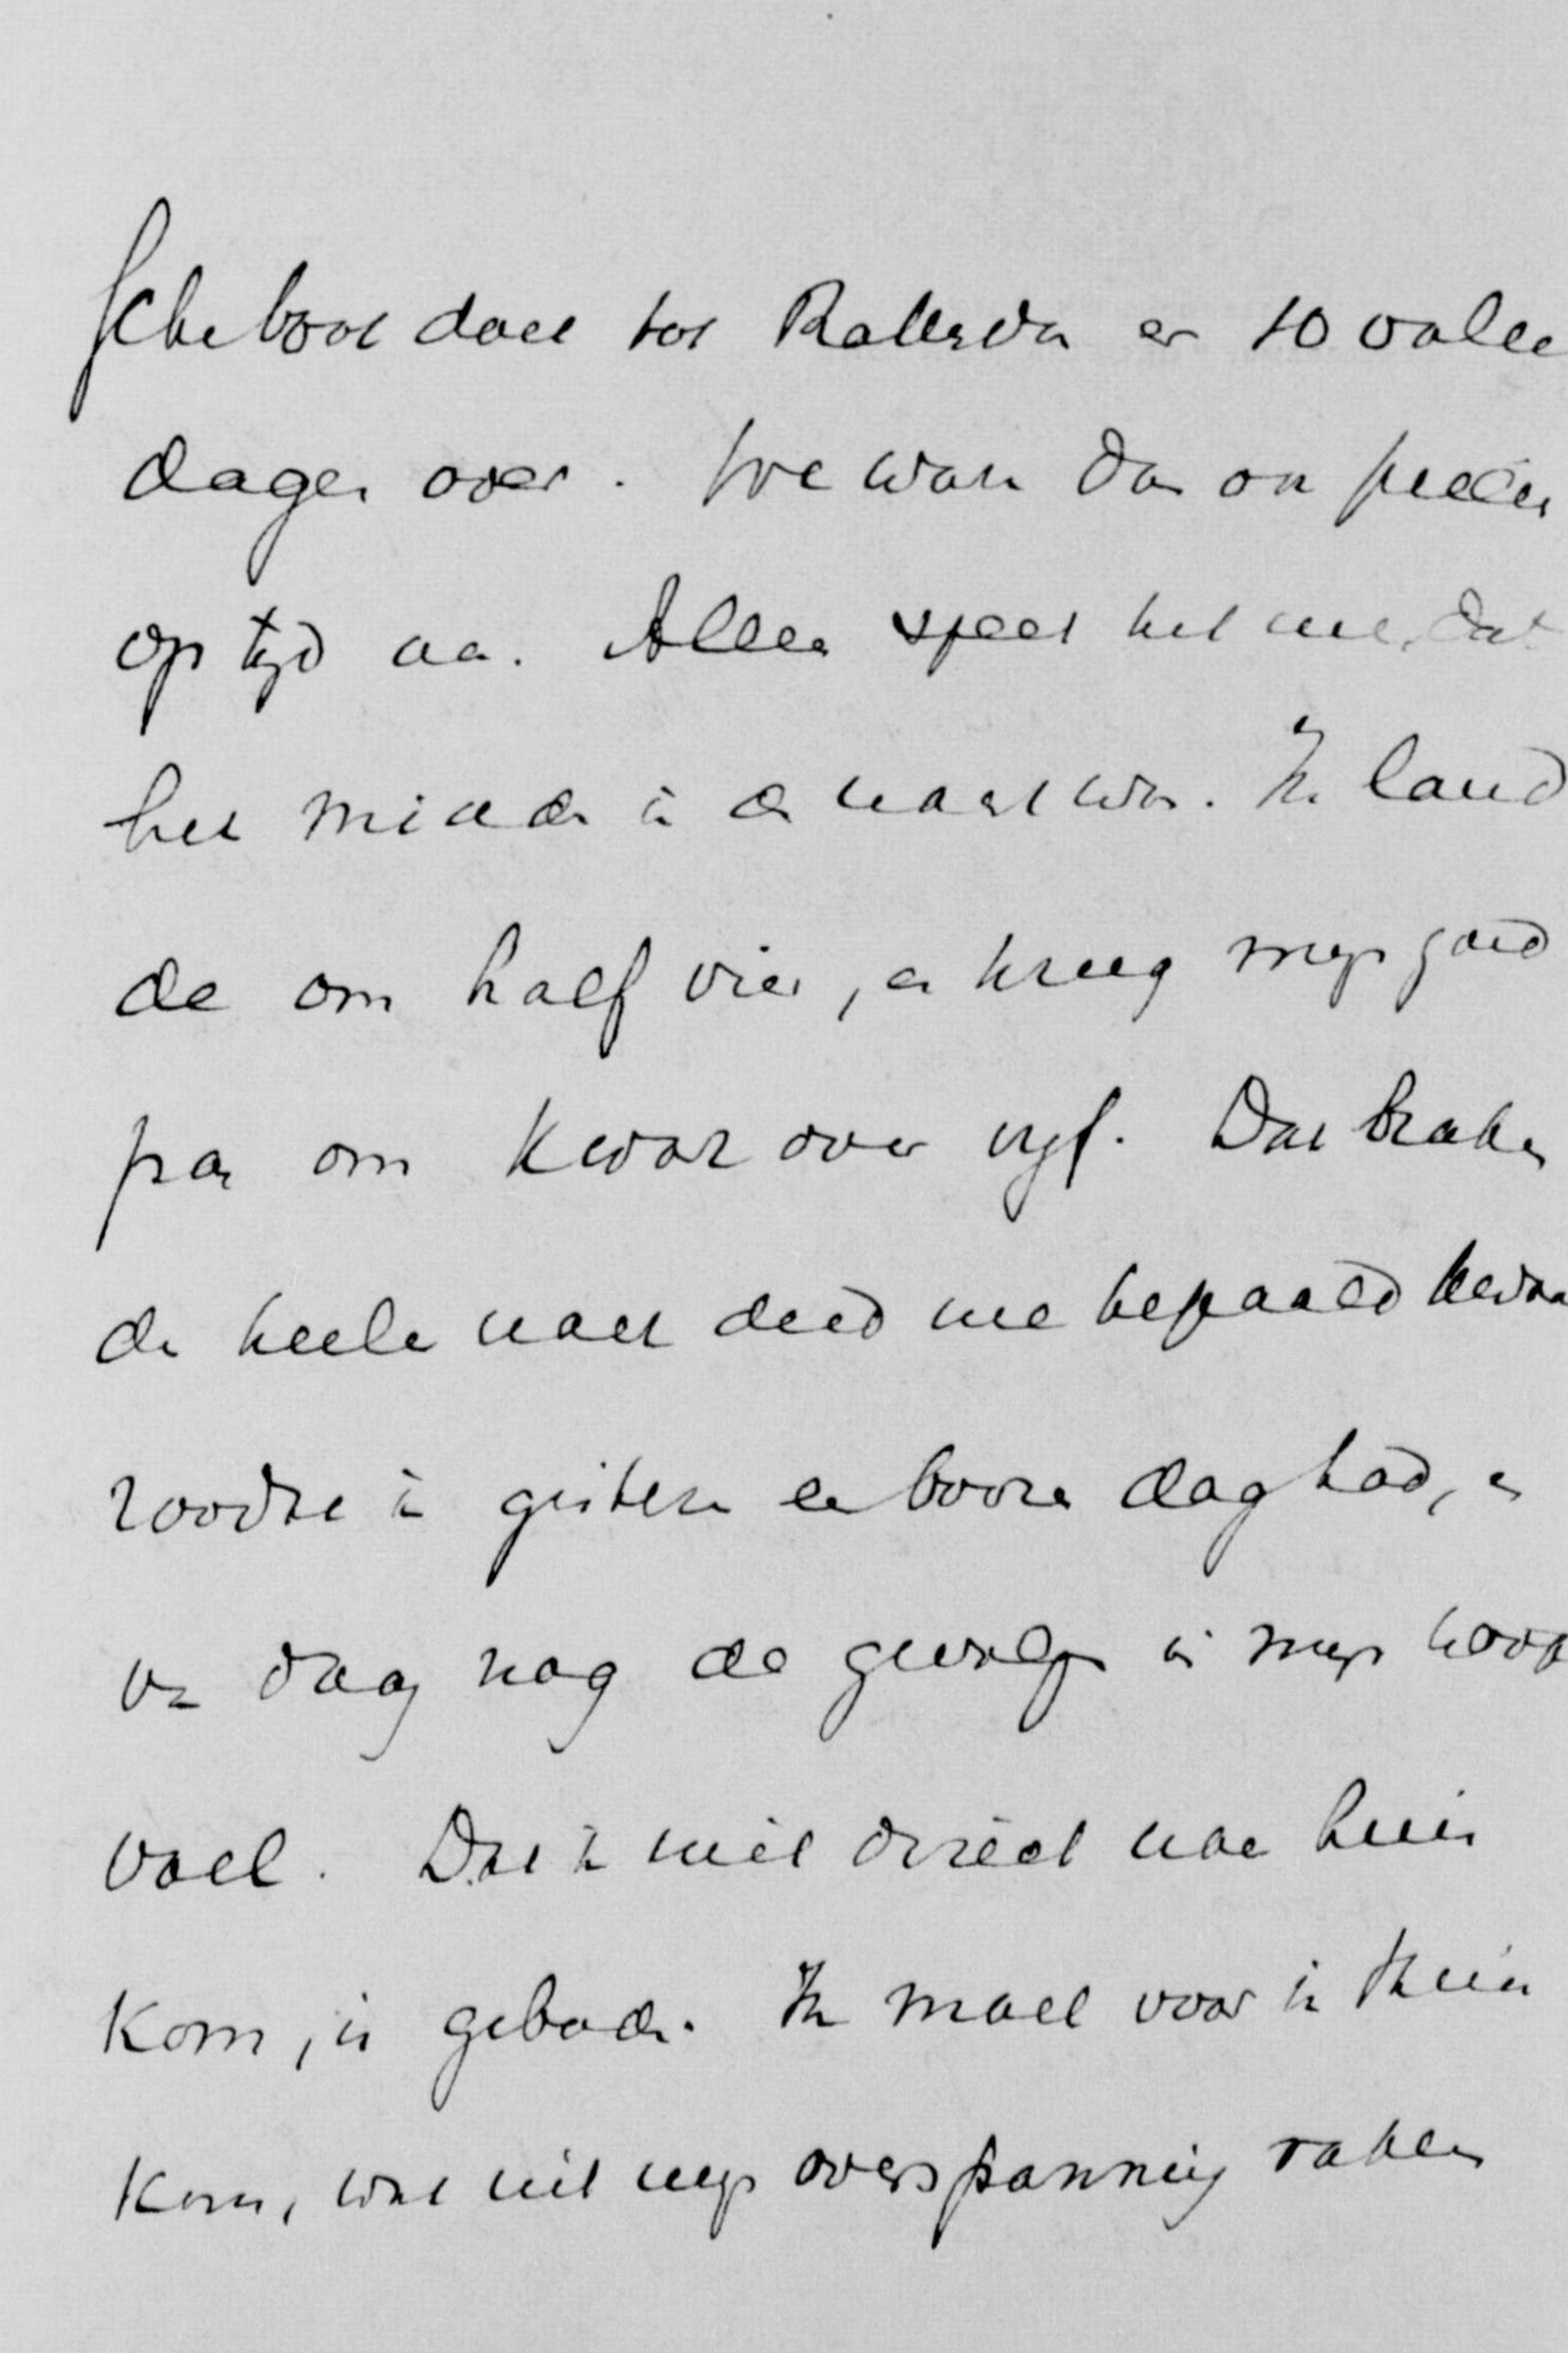 doet tot Rotterdam er 10 volle
dagen over. We waren dan ook precies
op tijd aan. Alleen speet het me, dat
het midden in de nacht was. Ik land
de om half vier, en kreeg mijn goed
pas om kwart over vijf. Dat braken
de heele nacht deed me bepaald kwaad
zoodat ik gisteren een booze dag had, en
van daag nog de gevolgen in mijn hoofd
voel. Dat ik niet direct naar huis
kom, is geboden. Ik moet voor ik thuis
kom, wat uit mijn overspanning raken